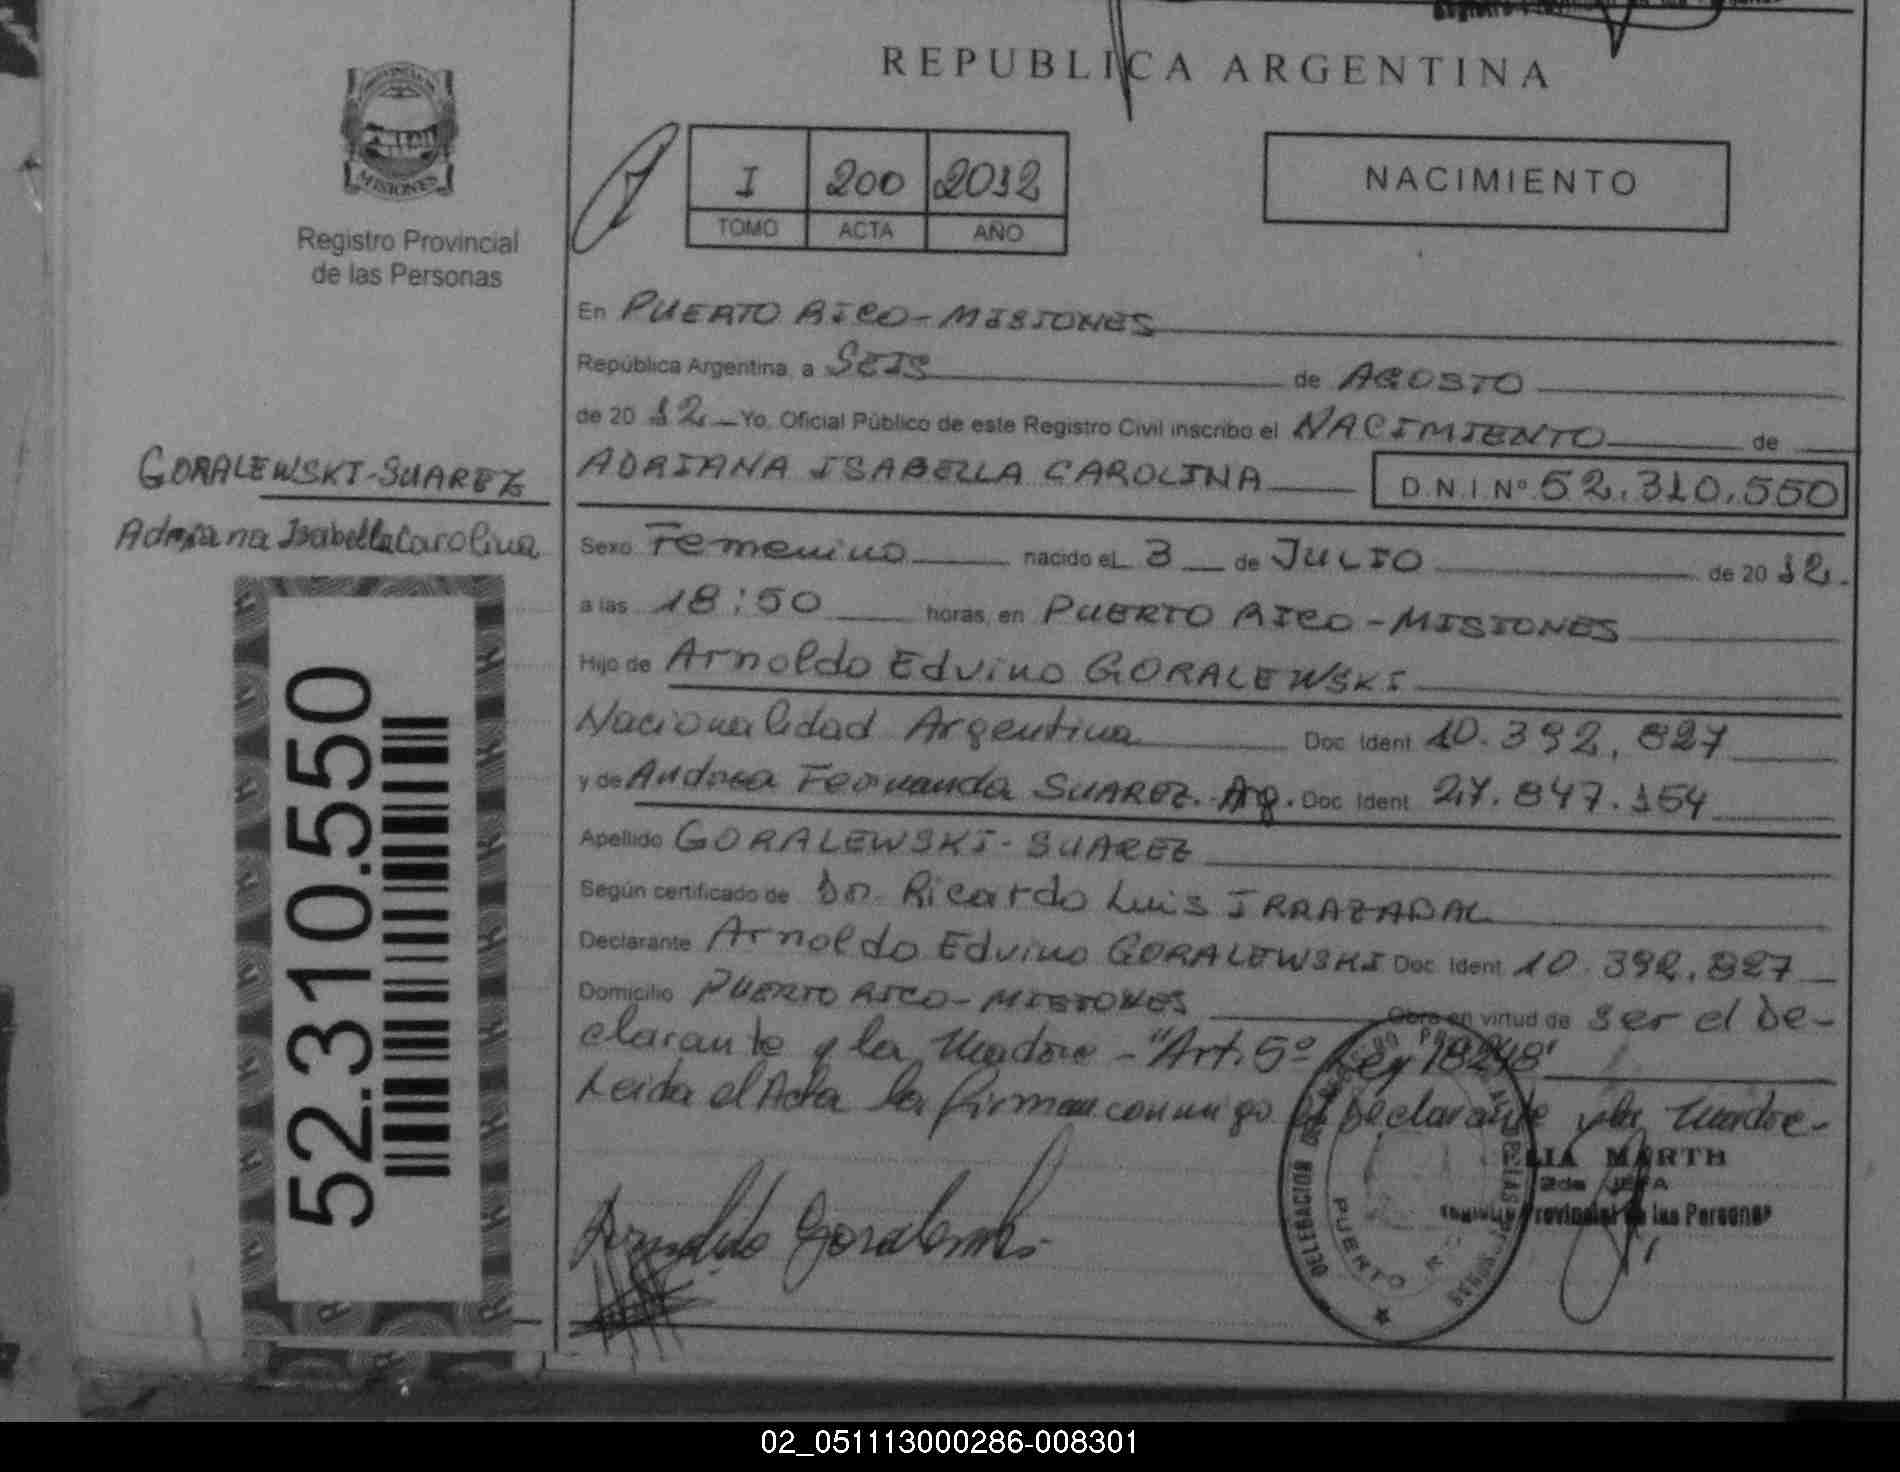 REPUBLICA ARGENTINA
MISIONES
Registro Provincial
de las Personas
I 200 2012
TOMO ACTA AÑO
NACIMIENTO
En PUERTO RICO - MISIONES
República Argentina, a SEIS de AGOSTO
de 20 12 Yo, Oficial Público de este Registro Civil inscribo el NACIMIENTO de
ADRIANA ISABELLA CAROLINA D.N.I Nº 52.310.550
GORALEWSKI-SUAREZ
Adriana Isabella Carolina
Sexo Femenino nacido el 3 de JULIO de 20 12.
a las 18:50 horas, en PUERTO RICO - MISIONES
Hijo de Arnoldo Edvino GORALEWSKI
Nacionalidad Argentina Doc. Ident. 10.392.827
y de Andrea Fernanda SUAREZ. Arg. Doc. Ident. 27.847.154
Apellido GORALEWSKI - SUAREZ
Según certificado de Dr. Ricardo Luis IRRAZABAL
Declarante Arnoldo Edvino GORALEWSKI Doc. Ident. 10.392.827
Domicilio PUERTO RICO - MISIONES Obra en virtud de ser el De-
clarante y la Madre - "Art. 5º Ley 18248"
Leida el Acta la firman conmigo el Declarante y la Madre-
52.310.550
Arnoldo Goralewski
DELEGACION PUERTO
LIA MARTH
2da JEFA
Provincial de las Personas
02_051113000286-008301